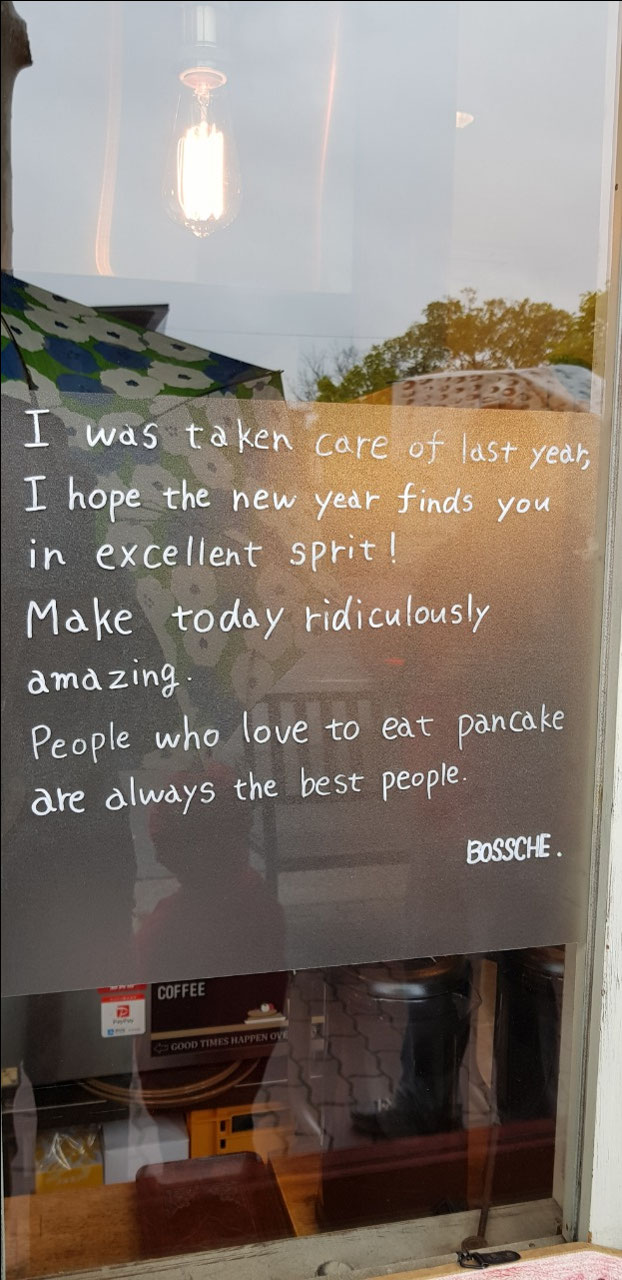 I was taken care of last year,
I hope the new year finds you
in excellent sprit!
Make today ridiculously
amazing.
People who love to eat pancake
are always the best people.
BOSSCHE.
COFFEE
GOOD TIMES HAPPEN OV
PayPay